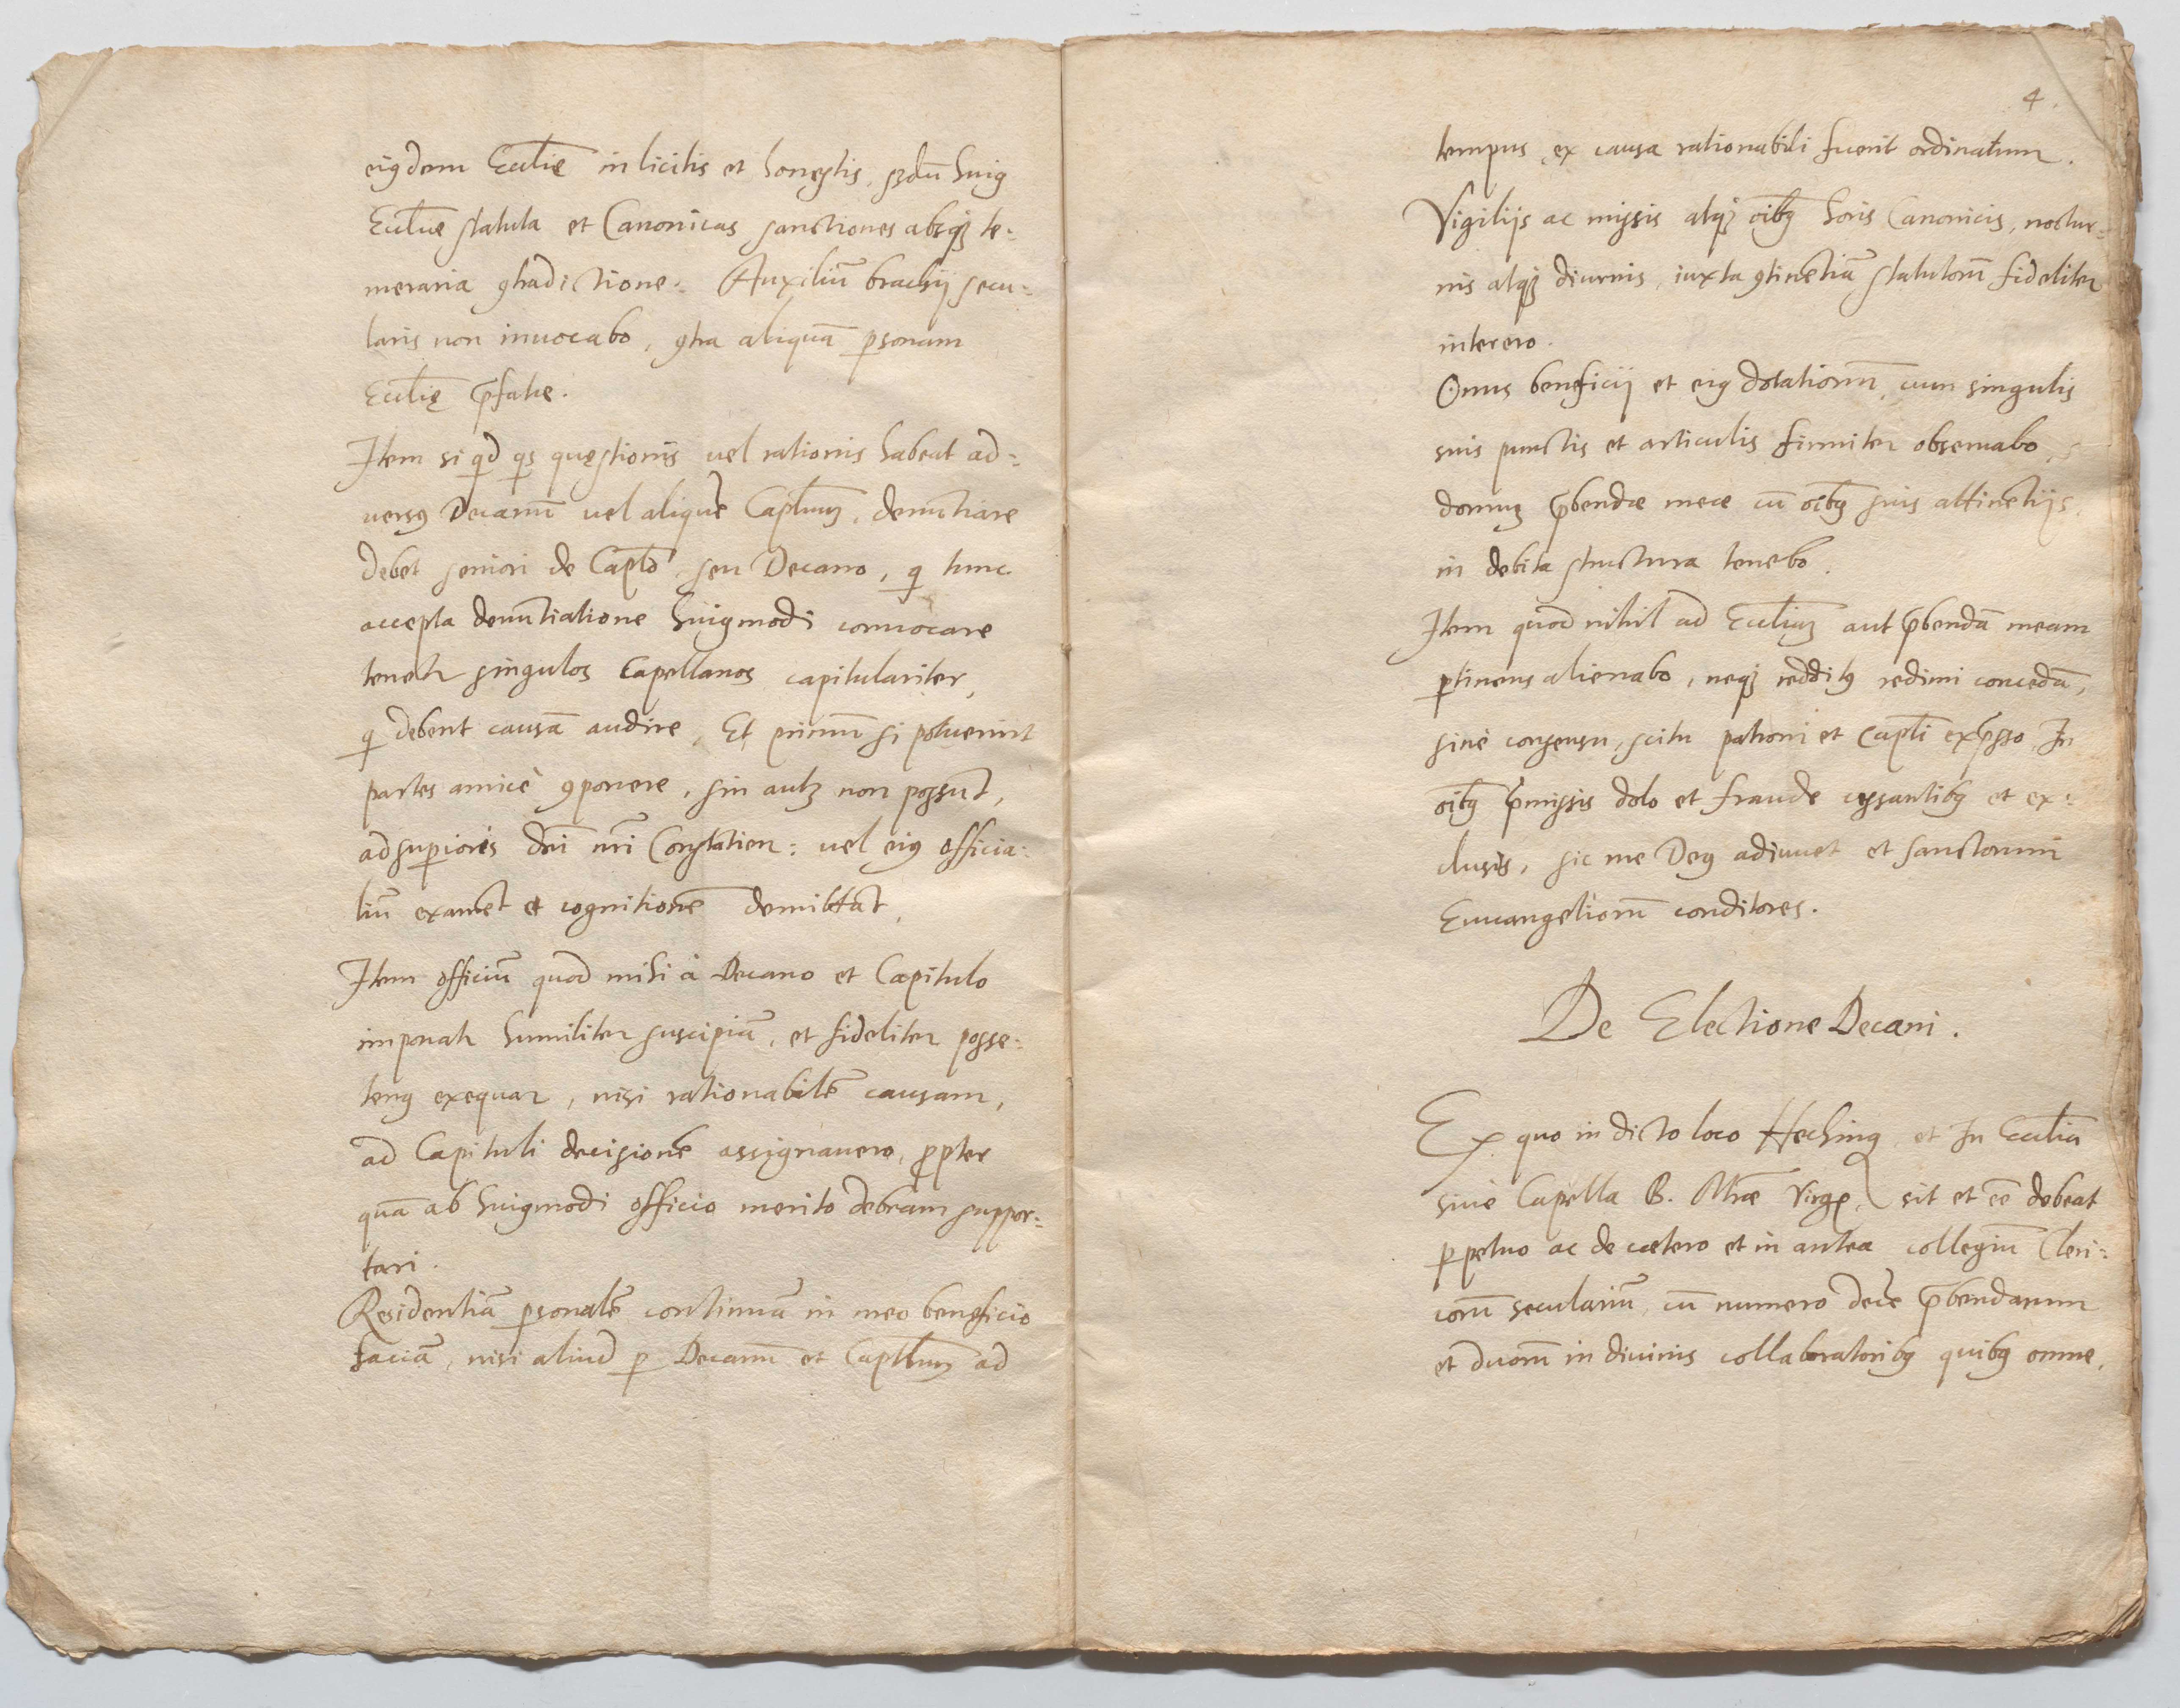 eiꝰdem Eccl̄ię in licitis et honestis, sꝫdū huiꝰ
Eccl̄ię statuta et Canonicas sanctiones absqꝫ te-
meraria ꝯtradictione. Auxiliū brachij secu-
laris non inuocabo, ꝯtra aliquā ꝑsonam
Eccl̄ię p̄fatę.
Item si qd qs quęstionis uel rationis habeat ad-
uersꝰ Decanū uel aliquē Capl̄mꝫ, denūtiare
debet seniori de Caplo seu Decano, qi tunc
accepta denūtiatione huiꝰmodi conuocare
tenetr singulos Capellanos capitulariter,
qi debent causā audire, Et primū si potuerint
partes amicè ꝯponere, sin autꝫ non possūt,
ad suꝑiores dn̄i nr̄i Constātien: uel eiꝰ officia-
liū examē et cognitionē demittāt,
Item officiū quod mihi à Decano et Capitulo
imponatr humiliter suscipiā, et fideliter posse-
tenꝰ exequar, nisi rationabilē causam,
ad Capituli decisionē assignauero, ꝓpter
quā ab huiꝰmodi officio merito debeam suppor-
tari.
Residentiā ꝑsonalē continuā in meo beneficio
faciā, nisi aliud ꝑ Decanū et Capl̄mꝫ ad
4.
tempus, ex causa rationabili fuerit ordinatum.
Vigilijs ac missis atqꝫ oībꝰ horis Canonicis, noctur-
nis atqꝫ diurnis, iuxta ꝯtinētiā statutorū fideliter
interero.
Onus beneficij et eiꝰ dotationū, cum singulis
suis punctis et articulis firmiter obseruabo,
domuꝫ p̄bendæ meæ cū oībꝰ suis attinētijs,
in debita structura tenebo.
Item quod nihil ad Eccl̄iaꝫ aut p̄bendā meam
ꝑtinens alienabo, neqꝫ redditꝰ redimi concedā,
sine consensu, scitu patroni et Capl̄i exp̄sso, In
oībꝰ p̄missis dolo et fraude cessantibꝰ et ex-
clusis, sic me Deꝰ adiuuet et sanctorum
Euuangeliorū conditores.
De Electione Decani.
Ex quo in dicto loco Heching, et In Eccl̄ia
siue Capella B. Mrīæ Virgꝭ, sit et eē debeat
ꝑpetuo ac de cætero et in antea collegiū Cleri-
corū seculariū, cū numero decē p̄bendarum
et duorū in diuinis collaboratoribꝰ quibꝰ omne,